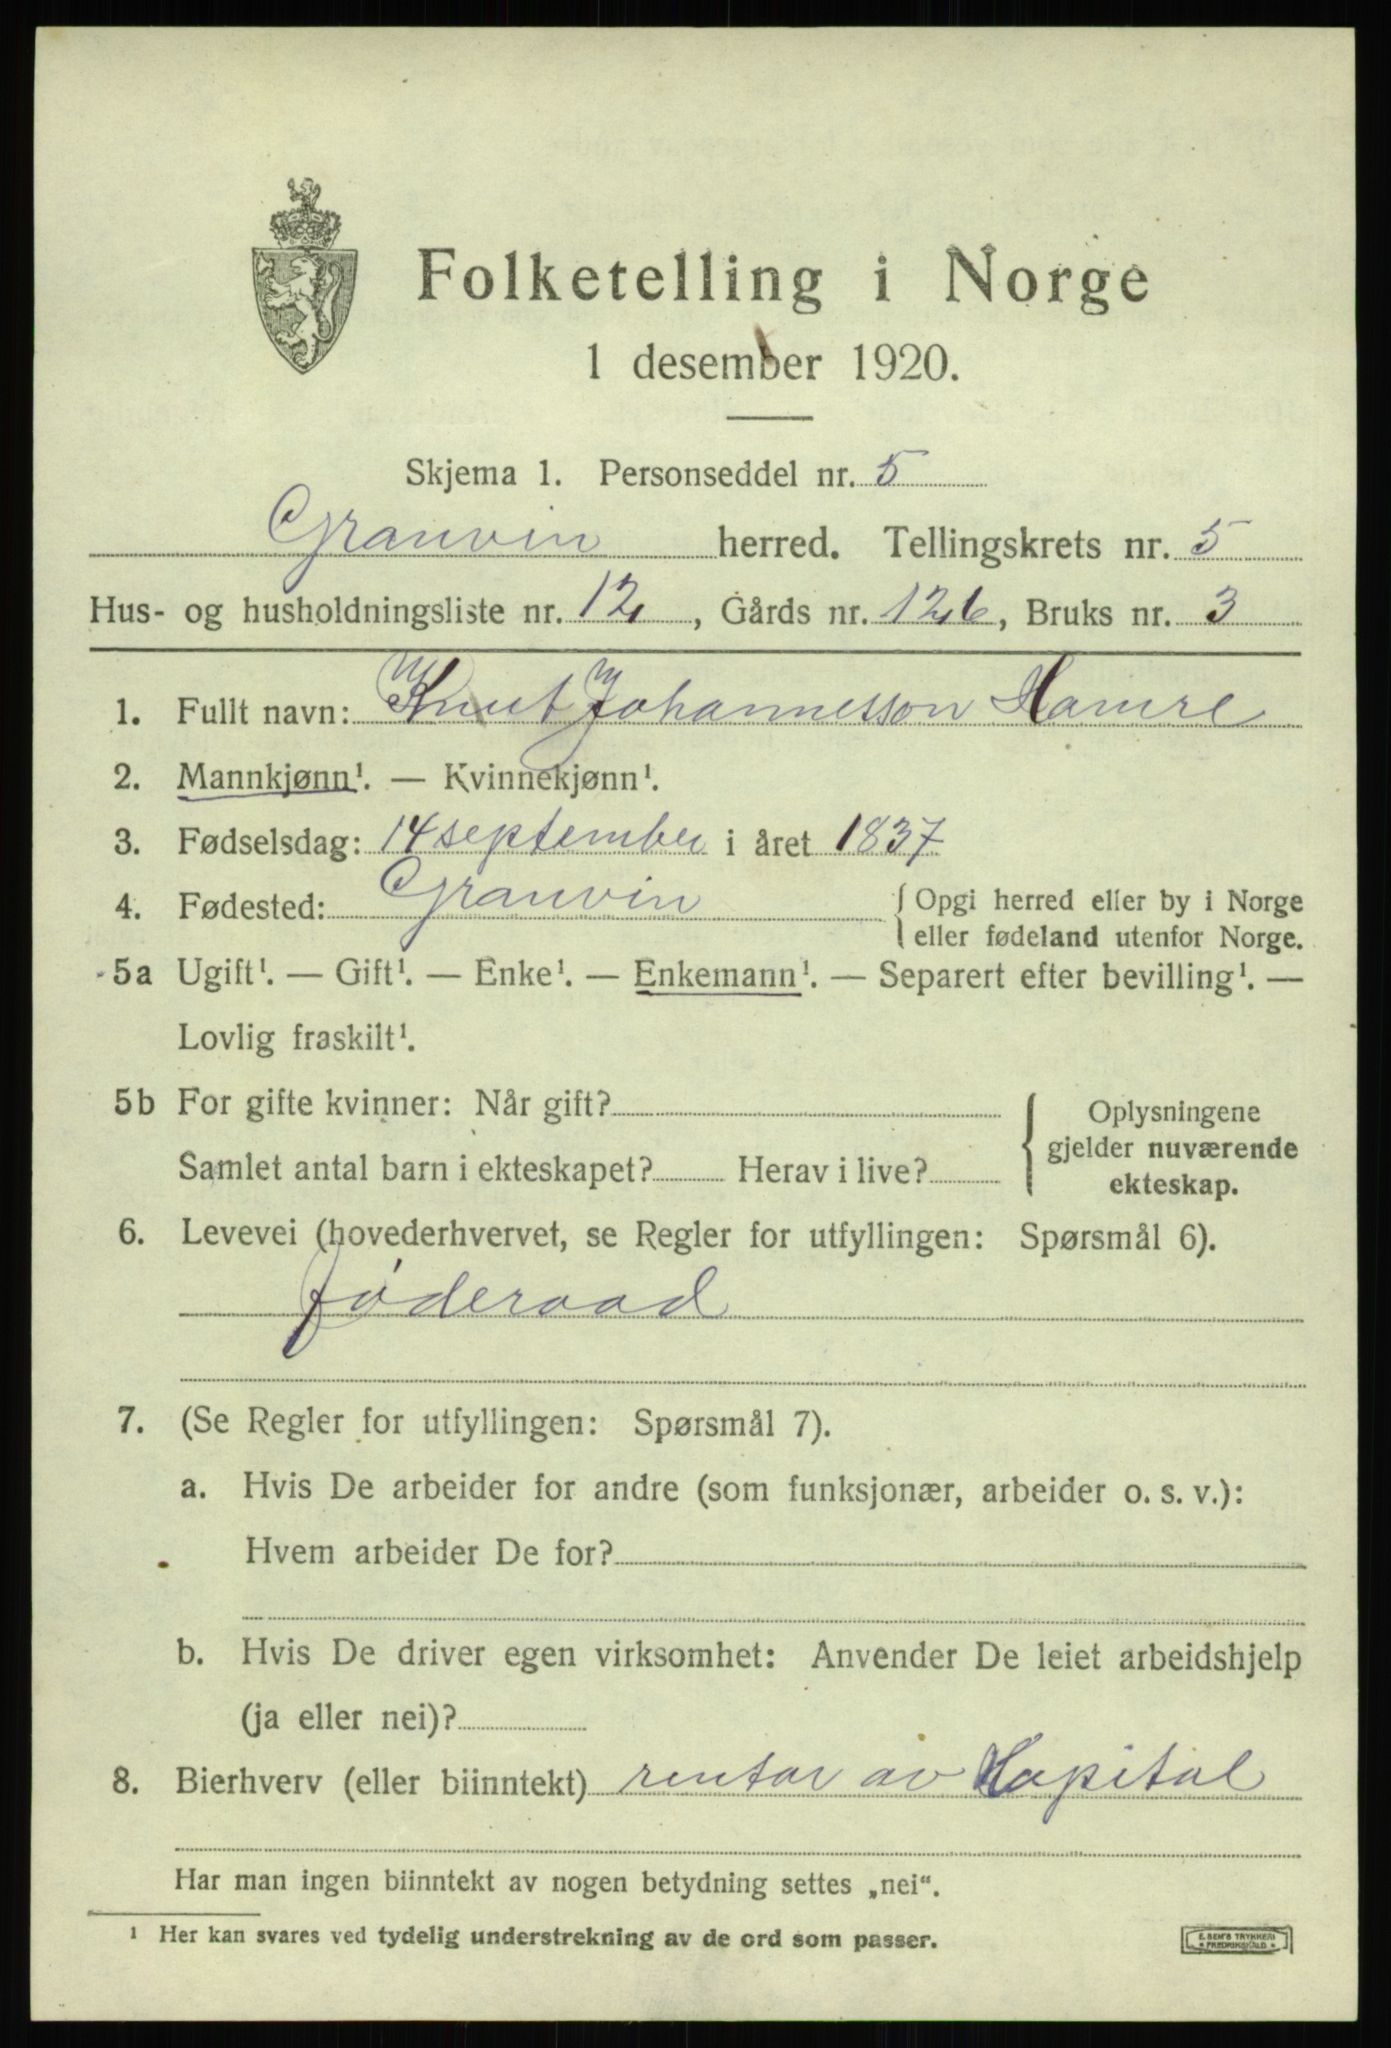 Folketelling i Norge
1 desember 1920.
Skjema 1. Personseddel nr. 5
Granvin herred. Tellingskrets nr. 5
Hus- og husholdningsliste nr. 12, Gårds nr. 126, Bruks nr. 3
1. Fullt navn: Knut Johannesson Hamre
2. Mannkjønn¹. — Kvinnekjønn¹.
3. Fødselsdag: 14 september i året 1837
4. Fødested: Granvin { Opgi herred eller by i Norge
eller fødeland utenfor Norge.
5a Ugift¹. — Gift¹. — Enke¹. — Enkemann¹. — Separert efter bevilling¹. —
Lovlig fraskilt¹.
5b For gifte kvinner: Når gift? { Oplysningene
gjelder nuværende
Samlet antal barn i ekteskapet? Herav i live?
ekteskap.
6. Levevei (hovederhvervet, se Regler for utfyllingen: Spørsmål 6).
føderaad
7. (Se Regler for utfyllingen: Spørsmål 7).
a. Hvis De arbeider for andre (som funksjonær, arbeider o. s. v.):
Hvem arbeider De for?
b. Hvis De driver egen virksomhet: Anvender De leiet arbeidshjelp
(ja eller nei)?
8. Bierhverv (eller biinntekt) rentar av Kapital
Har man ingen biinntekt av nogen betydning settes „nei“.
¹ Her kan svares ved tydelig understrekning av de ord som passer.
E. SEM'S TRYKKERI
FREDRIKSHALD